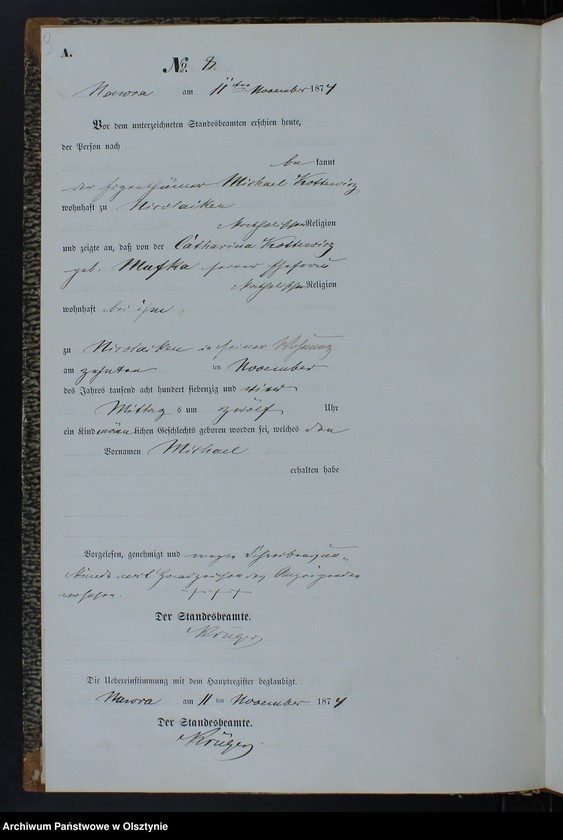 A.
No. 8.
Nawra am 11ten November 1874
Vor dem unterzeichneten Standesbeamten erschien heute,
der Person nach
be kannt
der Eigenthümer Michael Kottewicz
wohnhaft zu Nicolaiken
katholischer Religion
und zeigte an, daß von der Catharina Kottewicz
geb. Mufka seiner Ehefrau
katholischer Religion
wohnhaft bei ihm
zu Nicolaiken in seiner Wohnung
am zehnten ten November
des Jahres tausend acht hundert siebenzig und vier
Mittag s um zwölf Uhr
ein Kind männlichen Geschlechts geboren worden sei, welches den
Vornamen Michael
erhalten habe
Vorgelesen, genehmigt und wegen Schreibensun-
kunde mit Handzeichen des Anzeigenden
versehen. +++
Der Standesbeamte.
Krüger
Die Uebereinstimmung mit dem Hauptregister beglaubigt.
Nawra am 11 ten November 1874
Der Standesbeamte.
Krüger
Archiwum Państwowe w Olsztynie